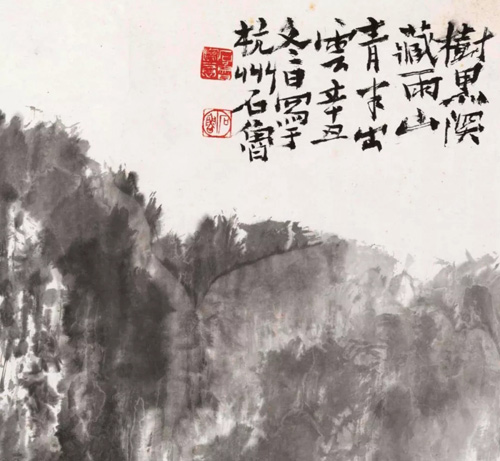 樹黑溪
藏雨山
青半出
雲辛丑
冬日寫于
杭州石魯